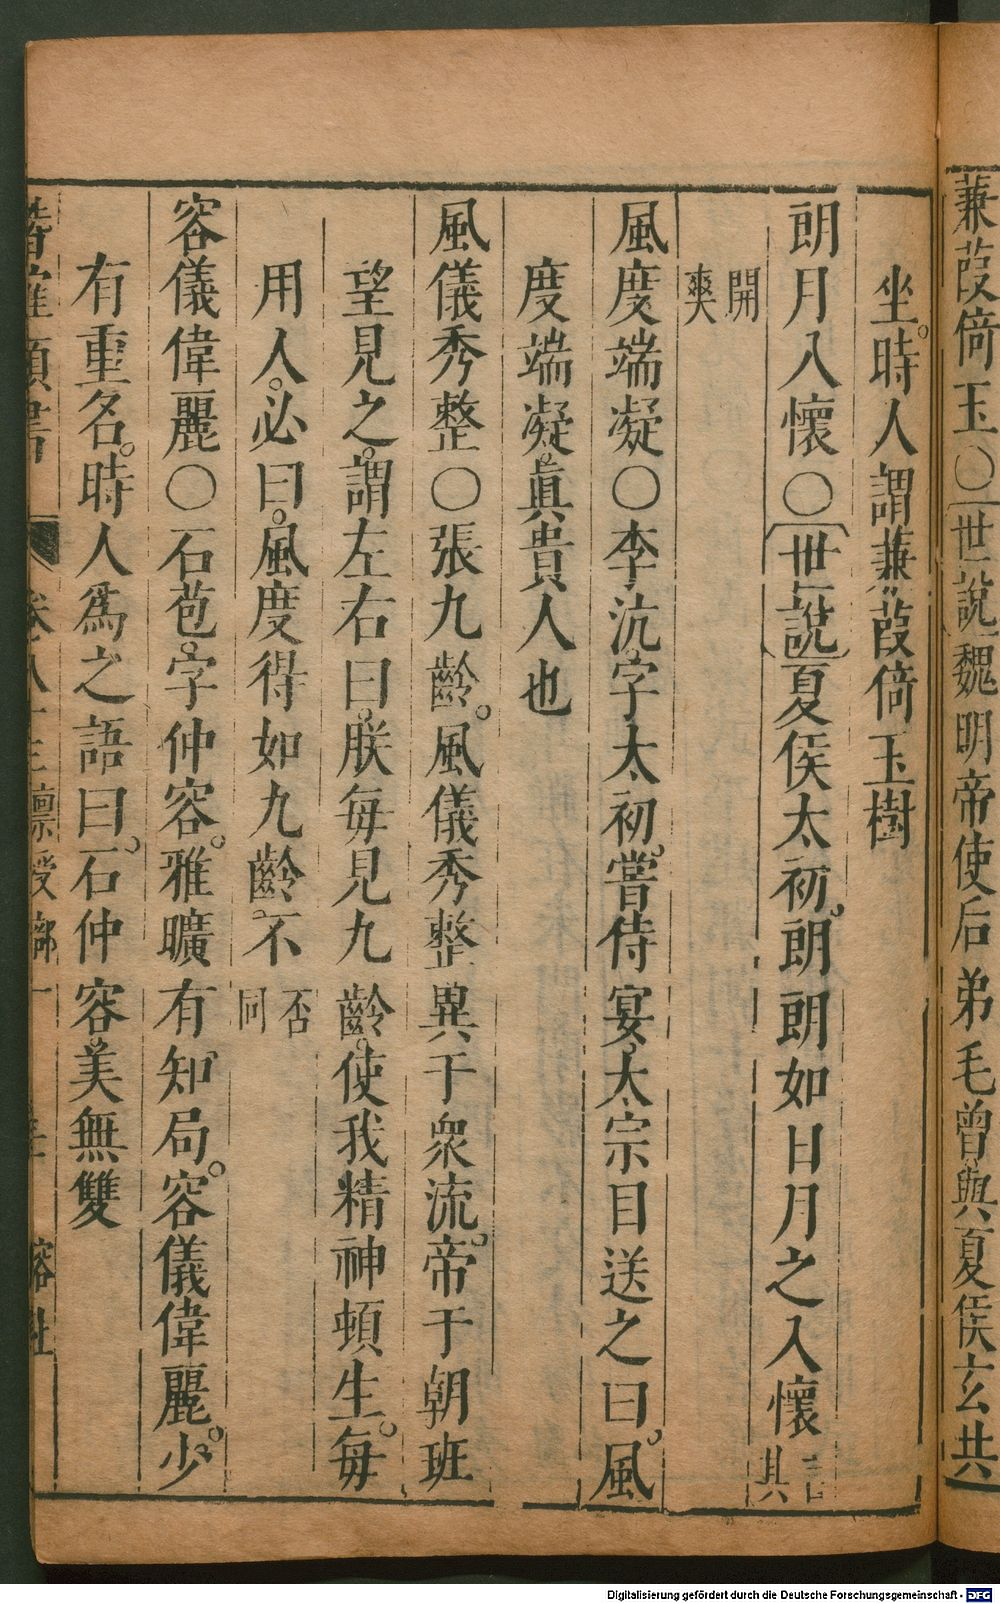 蒹葭倚玉○世說魏明帝使后弟毛曾與夏侯玄共
坐。時人謂蒹葭倚玉樹
朗月入懷○世說夏侯太初。朗朗如日月之入懷言其
開爽
風度端凝○李沆。字太初。嘗侍宴。太宗目送之曰。風
度端凝。眞貴人也
風儀秀整○張九齡。風儀秀整異于衆流。帝于朝班
望見之。謂左右曰。朕每見九齡。使我精神頓生。每
用人。必曰。風度得如九齡。不否同
容儀偉麗○石苞。字仲容。雅曠有知局。容儀偉麗。少
有重名。時人爲之語曰。石仲容。美無雙
類書 卷八 禀受部一
Digitalisierung gefördert durch die Deutsche Forschungsgemeinschaft - DFG